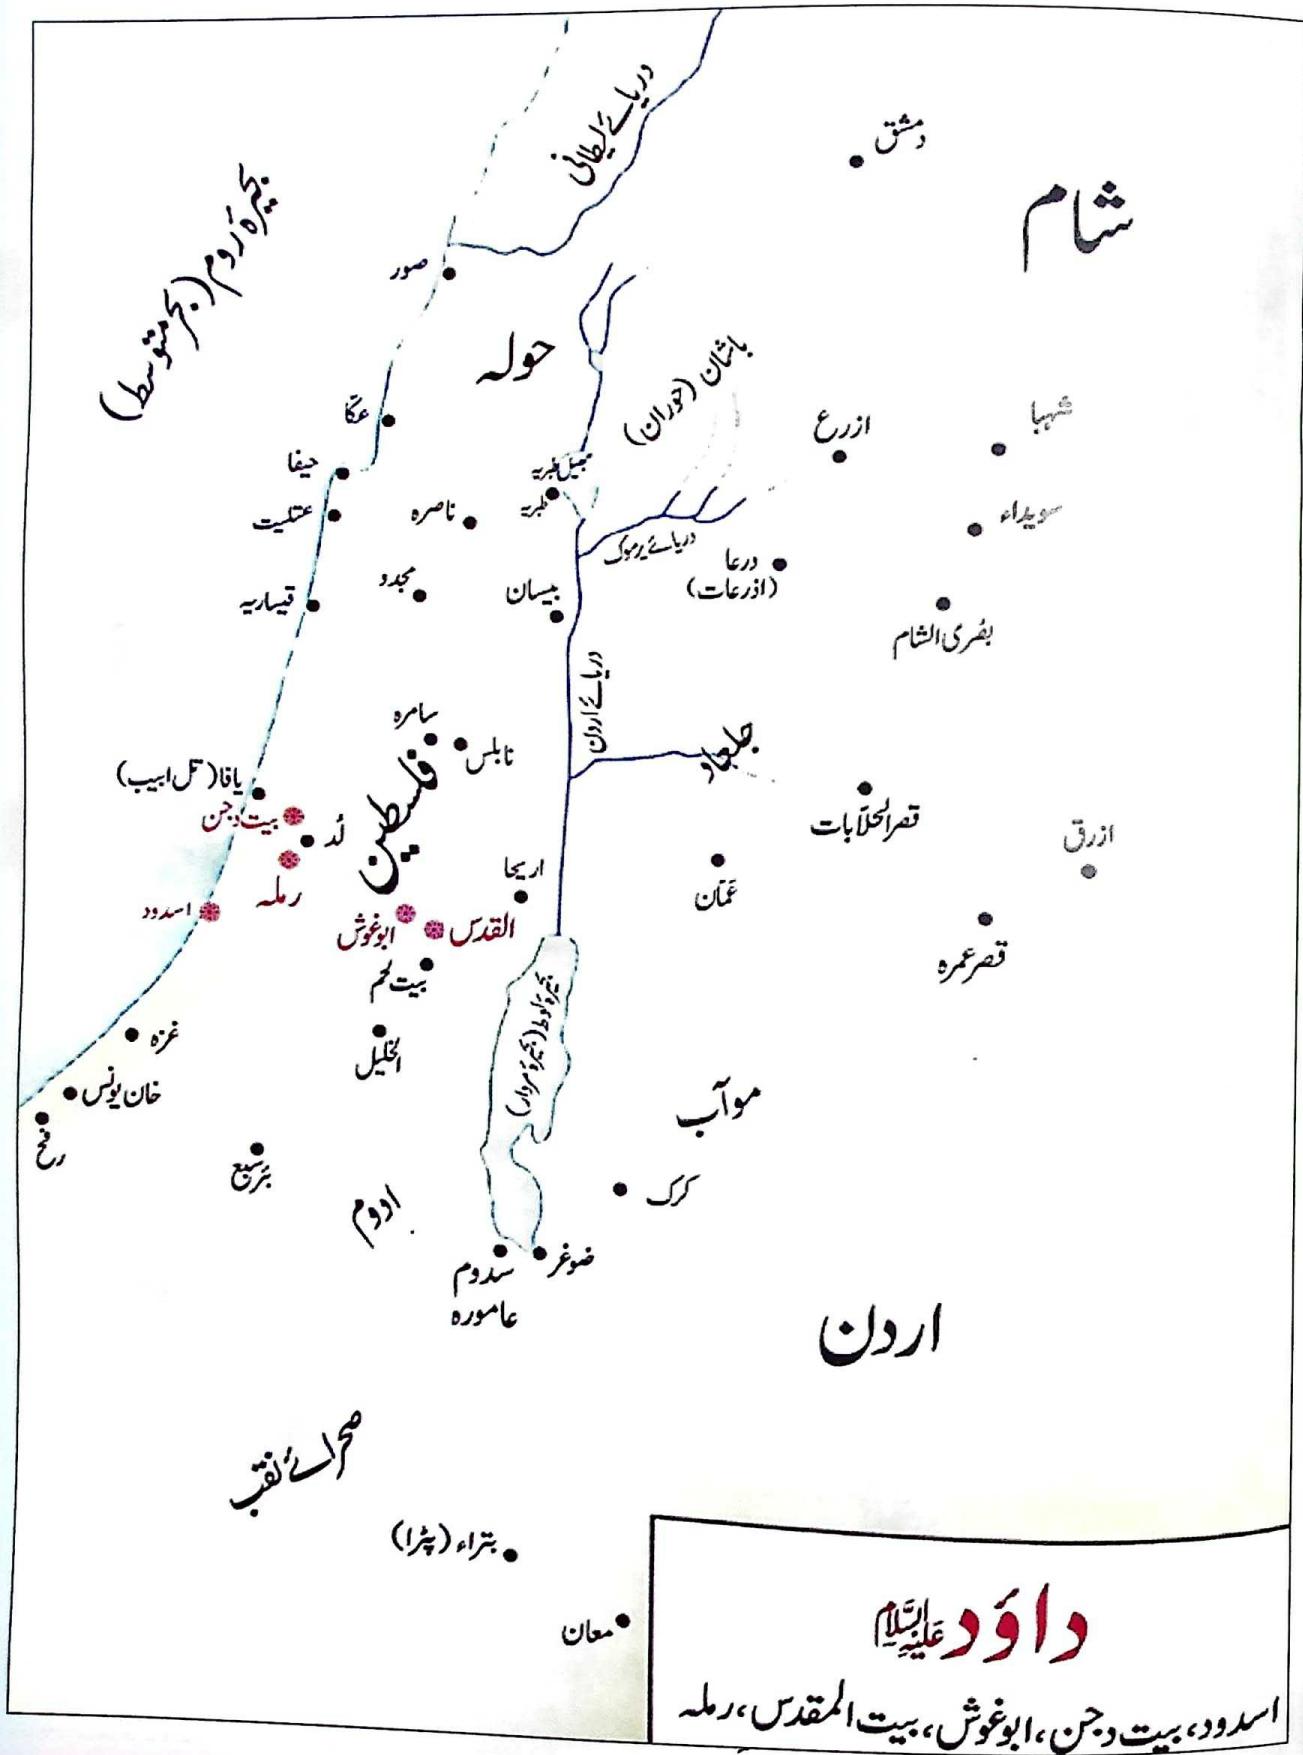 دریائے لیطانی
دمشق
شام
بحیرۂ روم (بحر متوسط)
صور
حولہ
باشان (حوران)
عکّا
ازرع
شہبا
حیفا
جھیل طبریہ
طبریہ
عتلیت
ناصرہ
سویداء
دریائے یرموک
درعا
(اذرعات)
مجدو
بیسان
قیساریہ
بصُریٰ الشام
دریائے اردن
سامرہ
نابلس
جلعاد
فلسطین
یافا (تل ابیب)
بیت دجن
لُد
رملہ
قصر الحلّابات
ازرق
اریحا
عَمّان
اسدود
ابوغوش
القدس
قصر عمرہ
بیت لحم
بحیرۂ لوط (بحیرۂ مردار)
غزہ
الخلیل
خان یونس
موآب
رفح
بئر سبع
ادوم
کرک
سدوم
ضوغر
عامورہ
اردن
صحرائے نقب
بتراء (پٹرا)
معان
داوٗد عَلَیْہِ السَّلَام
اسدود، بیت دجن، ابوغوش، بیت المقدس، رملہ